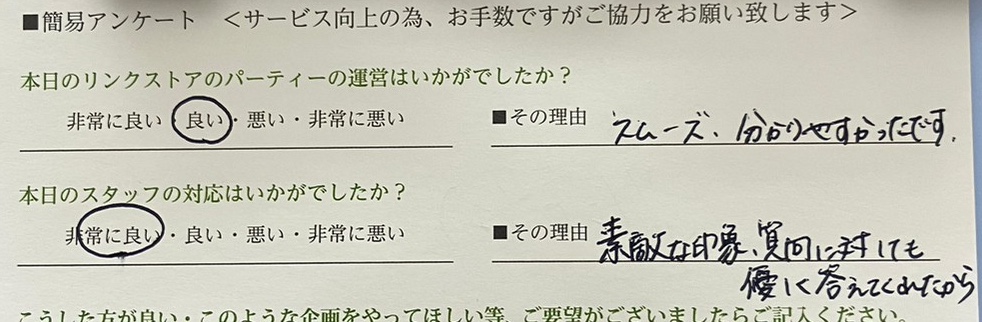 ■簡易アンケート　＜サービス向上の為、お手数ですがご協力をお願い致します＞
本日のリンクストアのパーティーの運営はいかがでしたか？
非常に良い・良い・悪い・非常に悪い　■その理由　スムーズ、分かりやすかったです。
本日のスタッフの対応はいかがでしたか？
非常に良い・良い・悪い・非常に悪い　■その理由　素敵な印象、質問に対しても
優しく答えてくれたから
こうした方が良い・このような企画をやってほしい等、ご要望がございましたらご記入ください。